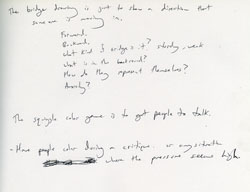 The bridge drawing is just to show a direction that
someone is moving in.
Forward,
Backward,
what kind of bridge is it? sturdy, weak
what is in the background?
How do they represent themselves?
Anxiety?
The squiggle color game is to get people to talk.
- Have people color during a critique. or any situation
where the pressure seems high.